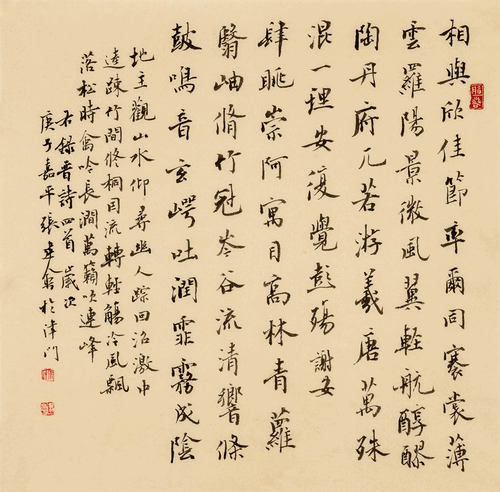 相與欣佳節率爾同褰裳薄
雲羅陽景微風翼輕航醇醪
陶丹府兀若游羲唐萬殊
混一理安復覺彭殤謝安
肆眺崇阿寓目高林青蘿
翳岫脩竹冠岑谷流清響條
鼓鳴音玄崿吐潤霏霧成陰
地主觀山水仰尋幽人蹤回沼激中
逵疎竹間修桐因流轉輕觴冷風飄
落松時禽吟長澗萬籟吹連峰
右錄晉詩四首歲次
庚子嘉平張於津門